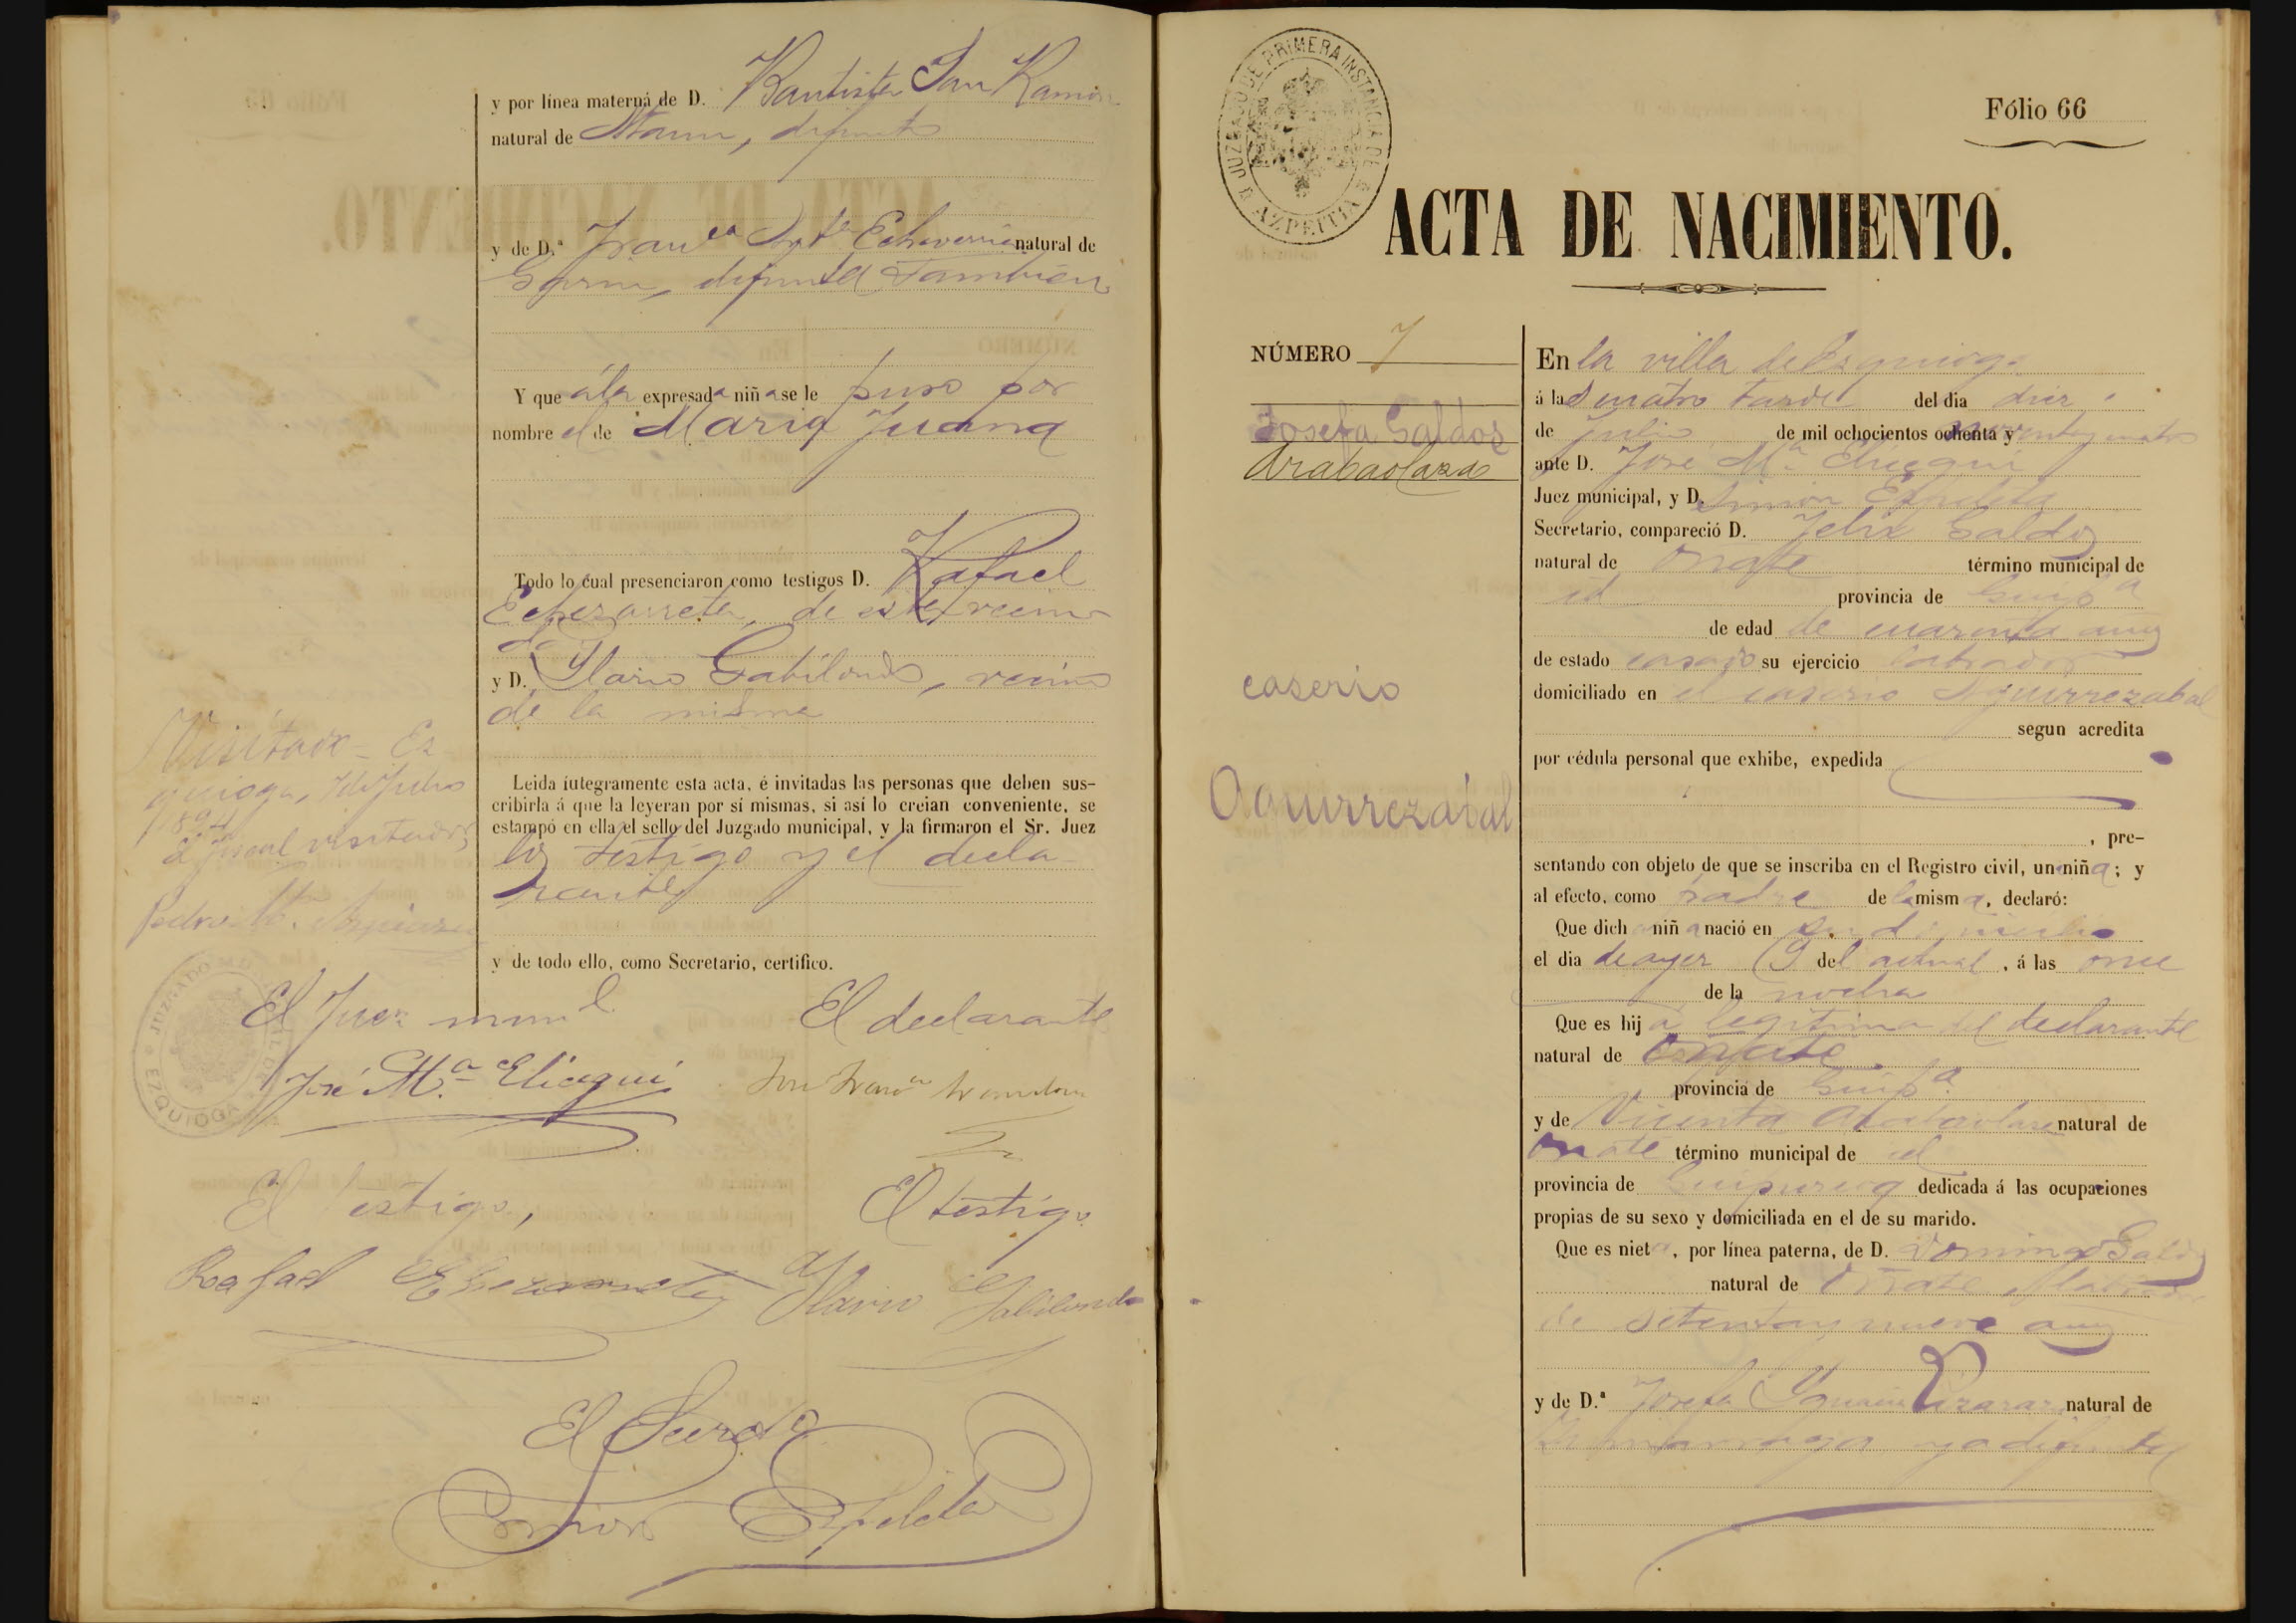 y por línea materna de D. Bautista San Ramon
natural de difunto
y de D.ª Fran.ca Echeverria natural de
difunta tambien
Y que á la expresada niña se le puso por
nombre el de Maria Juana
Todo lo cual presenciaron como testigos D. Rafael
Echezarreta, de esta vecin
dad
y D. Ylario Gabilondo, vecino
de la misma
Leida íntegramente esta acta, é invitadas las personas que deben sus-
cribirla á que la leyeran por sí mismas, si así lo creian conveniente, se
estampó en ella el sello del Juzgado municipal, y la firmaron el Sr. Juez
los testigo y el decla-
rante
y de todo ello, como Secretario, certifico.
Visitado = Ez
quioga, Julio
1894
El Fiscal visitador,
El Juez mun.l
El declarante
José M.ª Elicegui
El testigo,
El testigo
Rafael Echezarreta
Ylario Gabilondo
El Secret.º
Simon Ezpeleta
JUZGADO DE PRIMERA INSTANCIA DE AZPEITIA
Fólio 66
ACTA DE NACIMIENTO.
NÚMERO 7
Josefa Galdos
Arabaolaza
caserio
Aguirrezabal
En la villa de Ezquioga
á las cuatro tarde del dia diez
de Julio de mil ochocientos ochenta y noventa y cuatro
ante D. José M.ª Elicegui
Juez municipal, y D. Simon Ezpeleta
Secretario, compareció D. Felix Galdos
natural de Oñate término municipal de
id provincia de Guip.ª
de edad de cuarenta años
de estado casado su ejercicio labrador
domiciliado en el caserio Aguirrezabal
segun acredita
por cédula personal que exhibe, expedida
, pre-
sentando con objeto de que se inscriba en el Registro civil, una niña; y
al efecto, como padre de la misma, declaró:
Que dicha niña nació en su domicilio
el dia de ayer 9 del actual, á las once
de la noche
Que es hija legitima del declarante
natural de Oñate
provincia de Guip.ª
y de Vicenta Arabaolaza natural de
Oñate término municipal de id
provincia de Guipuzcoa dedicada á las ocupaciones
propias de su sexo y domiciliada en el de su marido.
Que es nieta, por línea paterna, de D. Domingo Galdos
natural de Oñate, labrador
de setenta y nueve años
y de D.ª Josefa Ygnacia natural de
Zumarraga ya difunta